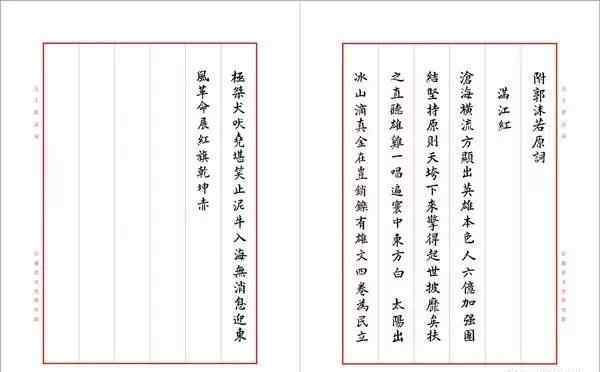 附郭沫若原詞
滿江紅
滄海橫流方顯出英雄本色人六億加强團
結堅持原則天垮下來擎得起世披靡矣扶
之直聽雄雞一唱遍寰中東方白 太陽出
冰山滴真金在豈銷鑠有雄文四卷為民立
極桀犬吠堯堪笑止泥牛入海無消息迎東
風革命展紅旗乾坤赤